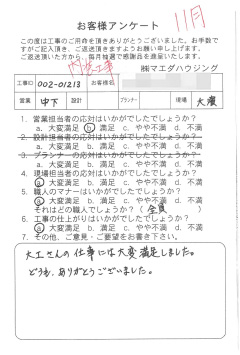 お客様アンケート
11月
この度は工事のご用命を頂きありがとうございました。お手数で
すがご記入頂き、ご返送頂きますようお願い申し上げます。
ご返送頂いた方から、毎月抽選で感謝品を進呈いたします。
内装工事
㈱マエダハウジング
工事ID 002-01213 お客様名
営業 中下 設計 プランナー 現場 大廣
1. 営業担当者の応対はいかがでしたでしょうか?
a. 大変満足 b. 満足 c. やや不満 d. 不満
2. 設計担当者の応対はいかがでしたでしょうか?
a. 大変満足 b. 満足 c. やや不満 d. 不満
3. プランナーの応対はいかがでしたでしょうか?
a. 大変満足 b. 満足 c. やや不満 d. 不満
4. 現場担当者の応対はいかがでしたでしょうか?
a. 大変満足 b. 満足 c. やや不満 d. 不満
5. 職人のマナーはいかがでしたでしょうか?
a. 大変満足 b. 満足 c. やや不満 d. 不満
それはどの職人でしょうか?( 全員 )
6. 工事の仕上がりはいかがでしたでしょうか?
a. 大変満足 b. 満足 c. やや不満 d. 不満
7. その他、ご意見・ご要望をお書き下さい。
大工さんの仕事には大変満足しました。
どうも、ありがとうございました。